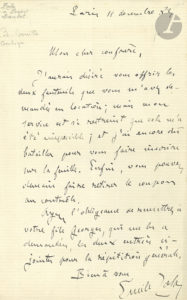 Paris 18 décembre
Mon cher confrère,
J'aurais désiré vous offrir les
deux fauteuils que vous m'avez de-
mandés en location; mais mon
service est si restreint que cela m'a
été impossible; et j'ai encore dû
batailler pour vous faire inscrire
sur la feuille. Enfin, vous pouvez
faire retirer le coupon
au contrôle.
l'obligeance de remettre à
votre fils Georges, qui me les a
demandées, les deux entrées ci-
jointes pour la répétition générale.
Bien à vous
Emile Zola